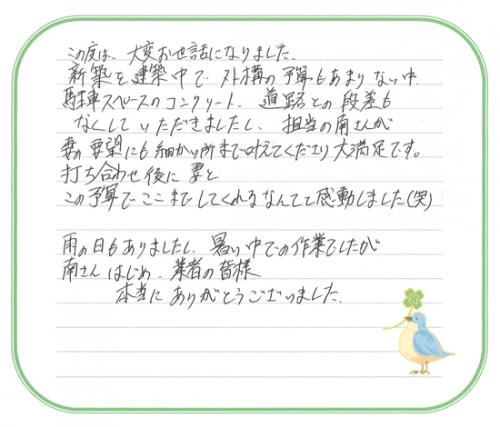 この度は、大変お世話になりました。
新築を建築中で外構の予算もあまりない中、
駐車スペースのコンクリート、道路との段差も
なくしていただきましたし、担当の南さんが
妻の要望にも細かい所まで叶えてくださり大満足です。
打ち合わせ後に妻と
この予算でここまでしてくれるなんてと感動しました(笑)
雨の日もありましたし、暑い中での作業でしたが
南さんはじめ、業者の皆様
本当にありがとうございました。